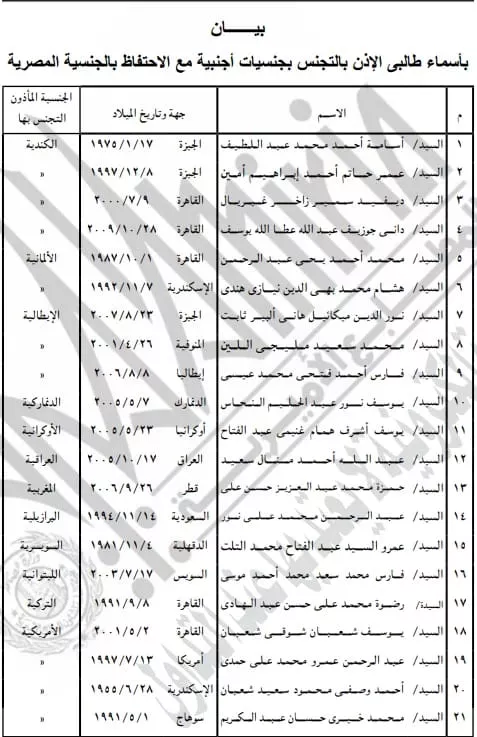 بيـــــان
بأسماء طالبى الإذن بالتجنس بجنسيات أجنبية مع الاحتفاظ بالجنسية المصرية
م الاســـم جهة وتاريخ الميلاد الجنسية المأذون التجنس بها
١ السيد/ أسامة أحمد محمد عبد اللطيف الجيزة ١٩٧٥/١/١٧ الكندية
٢ السيد/ عمر حاتم أحمد إبراهيم أمين الجيزة ١٩٩٧/١٢/٨ »
٣ السيد/ ديفيد سمير زاخر غبريال القاهرة ٢٠٠٠/٧/٩ »
٤ السيد/ دانى جوزيف عبد الله عطا الله يوسف القاهرة ٢٠٠٩/١٠/٢٨ »
٥ السيد/ محمد أحمد يحى عبد الرحمن القاهرة ١٩٨٧/١٠/١ الألمانية
٦ السيد/ هشام محمد بهى الدين نيازى هندى الإسكندرية ١٩٩٢/١١/٧ »
٧ السيد/ نور الدين ميكائيل هانى ألبير ثابت الجيزة ٢٠٠٧/٨/٢٣ الإيطالية
٨ السيد/ محمد سعيد مليجى اللين المنوفية ٢٠٠١/٤/٢٦ »
٩ السيد/ فارس أحمد فتحى محمد عيسى إيطاليا ٢٠٠٦/٨/٨ »
١٠ السيد/ يوسف نور عبد الحليم النحاس الدنمارك ٢٠٠٥/٥/٧ الدنماركية
١١ السيد/ يوسف أشرف همام غنيمى عبد الفتاح أوكرانيا ٢٠٠٥/٥/٢٣ الأوكرانية
١٢ السيد/ عبد الله أحمد منال سعيد العراق ٢٠٠٥/١٠/١٧ العراقية
١٣ السيد/ حمزة محمد عبد العزيز حسن على قطر ٢٠٠٦/٩/٢٦ المغربية
١٤ السيد/ عبد الرحمن محمد على نور السعودية ١٩٩٤/١١/١٤ البرازيلية
١٥ السيد/ عمرو السيد عبد الفتاح محمد التلت الدقهلية ١٩٨١/١١/٤ السويسرية
١٦ السيد/ فارس محمد سعد محمد أحمد موسى السويس ٢٠٠٣/٧/١٧ الليتوانية
١٧ السيدة/ رضوة محمد على حسن عبد الهادى القاهرة ١٩٩١/٩/٨ التركية
١٨ السيد/ يوسف شعبان شوقى شعبان القاهرة ٢٠٠١/٥/٢ الأمريكية
١٩ السيد/ عبد الرحمن عمرو محمد على حمدى أمريكا ١٩٩٧/٧/١٣ »
٢٠ السيد/ أحمد وصفى محمود سعيد شعبان الإسكندرية ١٩٥٥/٦/٢٨ »
٢١ السيد/ محمد خيرى حسان عبد الكريم سوهاج ١٩٩١/٥/١ »